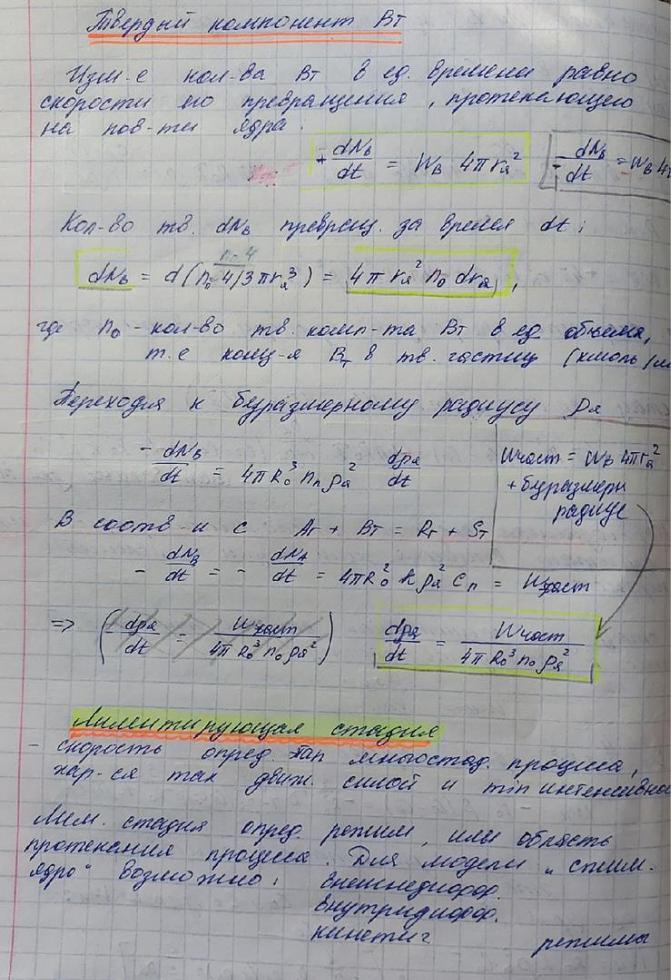 Твердый компонент Bт
Изм-е кол-ва Bт в ед. времени равно
скорости его превращения, протекающего
на пов-ти ядра.
+ dN_B/dt = W_B 4π r_я²
- dN_B/dt = W_B 4π
Кол-во тв. dN_B превращ. за время dt:
dN_B = d(n₀ 4/3 π r_я³) = 4π r_я² n₀ dr_я,
где n₀ - кол-во тв. комп-та Bт в ед. объема,
т.е конц-я Bт в тв. частиц (кмоль/м
Переходя к безразмерному радиусу ρ_я
- dN_B/dt = 4π R₀³ n_п ρ_я² dρ_я/dt
Wчаст = W_B 4π r_я²
+ безразмерн
радиус
В соотв-и с Aг + Bт = Rг + Sт
- dN_B/dt = - dN_A/dt = 4π R₀² k ρ_я² c_п = Wчаст
=> (- dρ_я/dt = Wчаст / 4π R₀³ n₀ ρ_я²)
dρ_я/dt = Wчаст / 4π R₀³ n₀ ρ_я²
Лиментирующая стадия
- скорость опред. тип многостад. процесса,
хар-ся так движ. силой и min интенсивнос
Лим. стадия опред. режим, или область
протекания процесса. Для модели "сжим.
ядро" возможно: внешнедиффор.
внутридиффор.
кинетич режимы